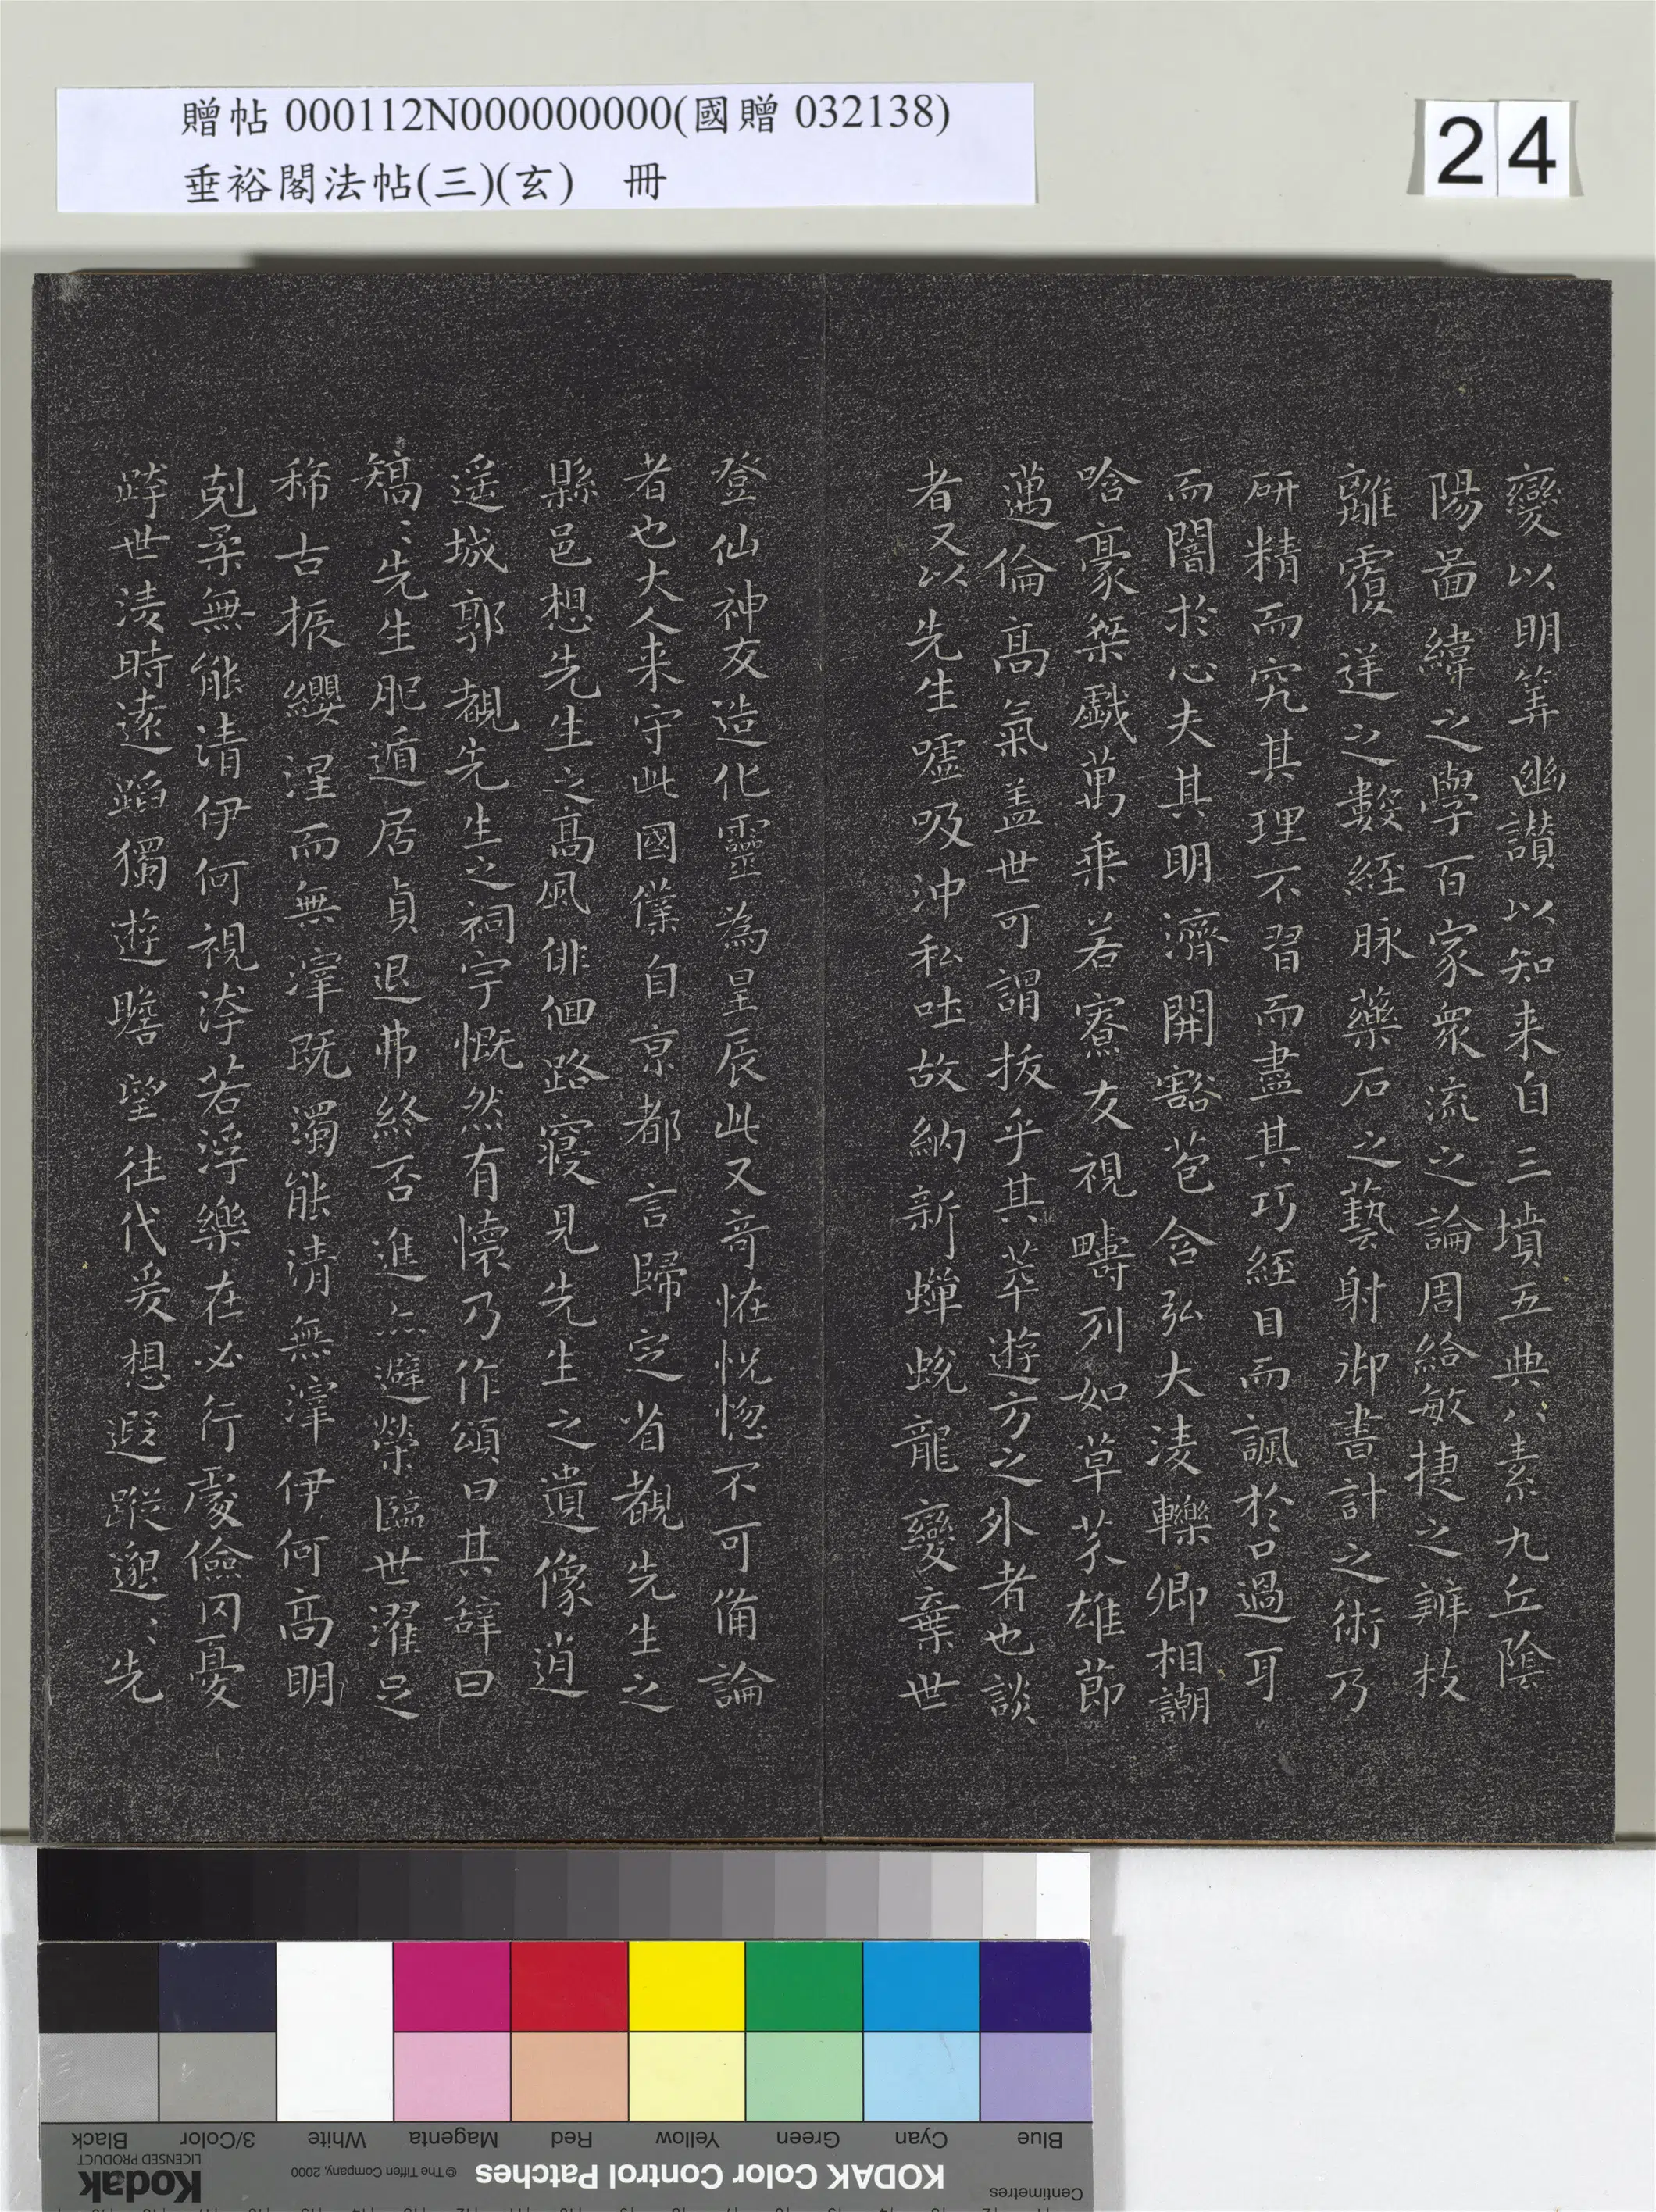 贈帖 000112N000000000(國贈 032138)
垂裕閣法帖(三)(玄) 冊
24
變以明筭幽讃以知来自三墳五典八素九丘陰
陽啚緯之學百家衆流之論周給敏捷之辨枝
離覆逆之數經脉藥石之藝射御書計之術乃
研精而究其理不習而盡其巧經目而諷於口過耳
而闇於心夫其明濟開豁苞含弘大淩轢卿相謿
哈豪桀戱萬乗若寮友視疇列如草芥雄節
邁倫髙氣盖世可謂拔乎其萃遊方之外者也談
者又以先生噓吸沖私吐故納新蟬蛻龍變棄世
登仙神友造化靈為星辰此又奇恠恍惚不可俻論
者也大人来守此國僕自亰都言歸定省覩先生之
縣邑想先生之髙風徘佪路寢見先生之遺像逍
遥城郭覩先生之祠宇慨然有懷乃作頌曰其辭曰
矯〻先生肥遁居貞退弗終否進亦避榮臨世濯足
稀古振纓涅而無滓既濁能清無滓伊何高明
剋柔無能清伊何視洿若浮樂在必行處儉罔憂
跨世淩時遠蹈獨遊瞻望往代爰想遐蹤邈〻先
Black
3/Color
White
Magenta
Red
Yellow
Green
Cyan
Blue
Kodak
LICENSED PRODUCT
© The Tiffen Company, 2000
KODAK Color Control Patches
Centimetres